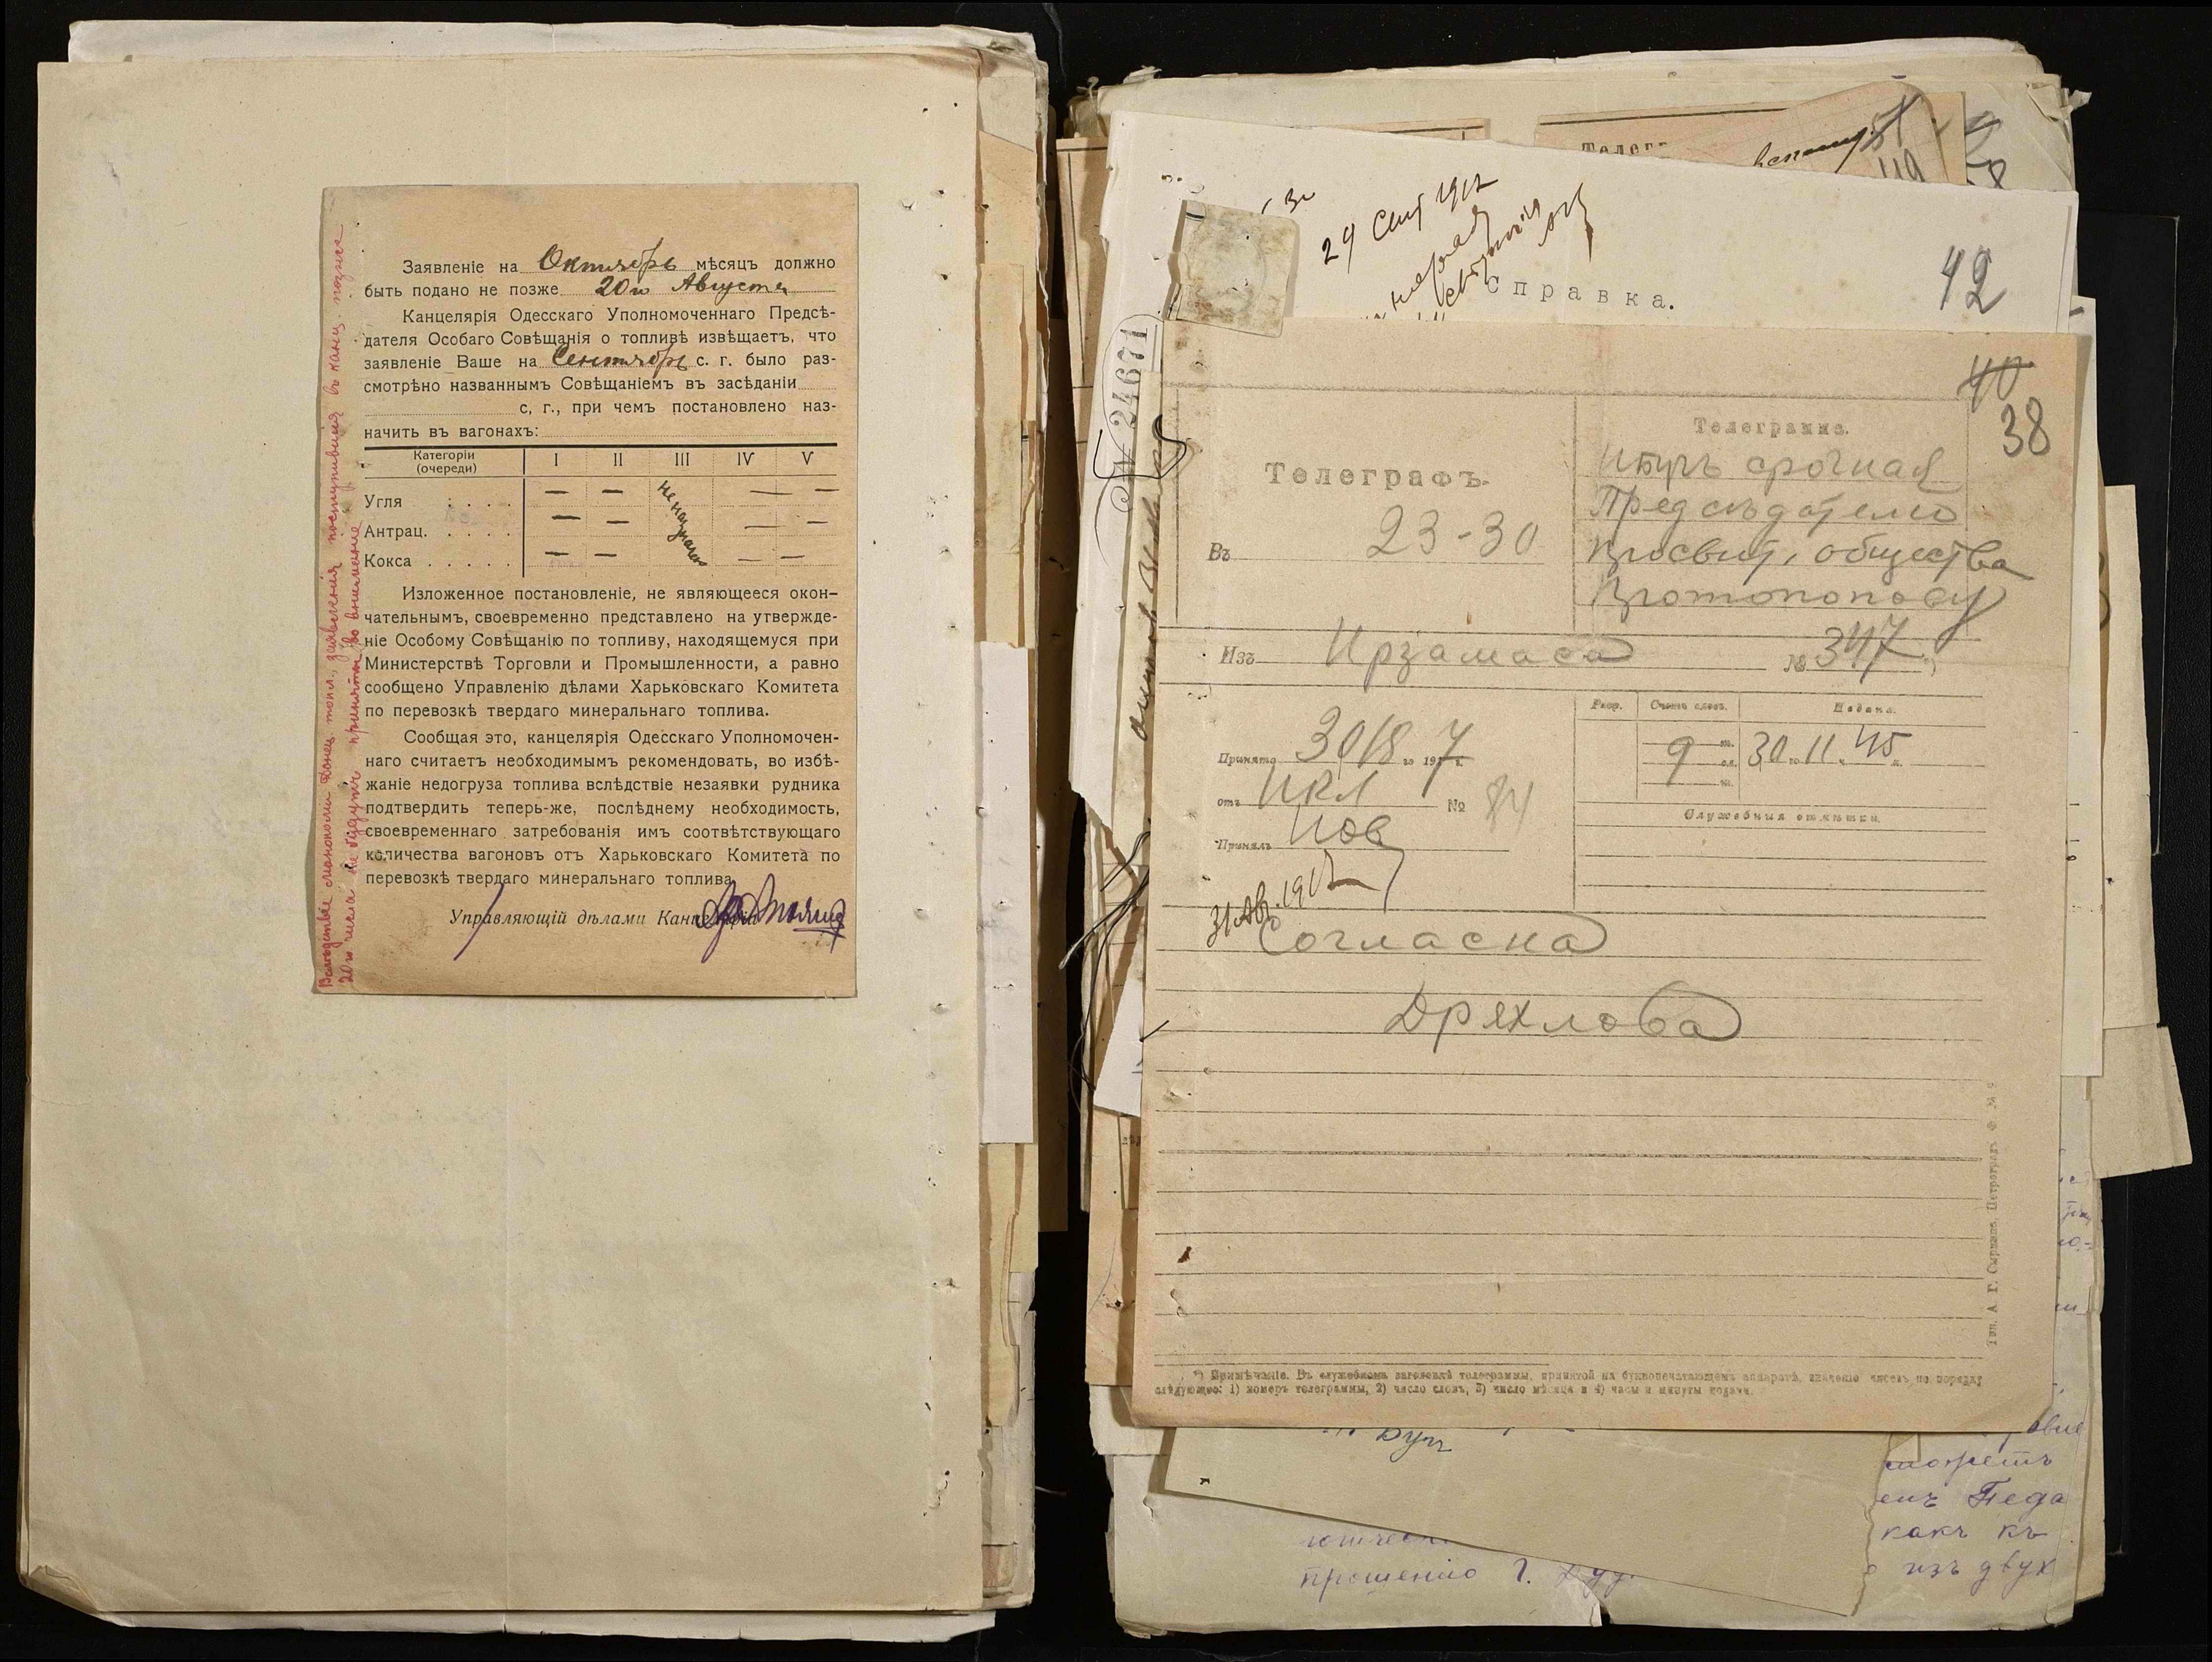 Заявленіе на Октябрь мѣсяцъ должно
быть подано не позже 20го Августа
Канцелярія Одесскаго Уполномоченнаго Предсѣ-
дателя Особаго Совѣщанія о топливѣ извѣщаетъ, что
заявленіе Ваше на Сентябрь с. г. было раз-
смотрѣно названнымъ Совѣщаніемъ въ засѣданіи
с, г., при чемъ постановлено наз-
начить въ вагонахъ:
Категоріи
(очереди) I II III IV V
Угля
Антрац.
Кокса
не назначено
Изложенное постановленіе, не являющееся окон-
чательнымъ, своевременно представлено на утвержде-
ніе Особому Совѣщанію по топливу, находящемуся при
Министерствѣ Торговли и Промышленности, а равно
сообщено Управленію дѣлами Харьковскаго Комитета
по перевозкѣ твердаго минеральнаго топлива.
Сообщая это, канцелярія Одесскаго Уполномочен-
наго считаетъ необходимымъ рекомендовать, во избѣ-
жаніе недогруза топлива вслѣдствіе незаявки рудника
подтвердить теперь-же, послѣднему необходимость,
своевременнаго затребованія имъ соотвѣтствующаго
количества вагоновъ отъ Харьковскаго Комитета по
перевозкѣ твердаго минеральнаго топлива
Управляющій дѣлами Канцеляріи
Вслѣдствіе монополии Донец. топл., заявленія поступившія въ канц. позже
20го числа не будутъ приняты во вниманіе
24 Сент 1917
Справка.
42
№ 24671
40
38
Телеграфъ.
Въ 23-30
Телеграмма.
срочная
Предсѣдателю
просвѣт, общества
Протопопову
Изъ Арзамаса № 347
Принята 30/8 го 1917 г.
отъ № 84
Принялъ
Разр.
Счетъ словъ.
Подана.
9 сл. 30 го 11 ч. 45 м.
Служебныя отмѣтки.
31 Авг. 1917
Согласна
Дряхлова
*) Примѣчаніе. Въ служебномъ заголовкѣ телеграммы, принятой на буквопечатающемъ аппаратѣ, значеніе чиселъ по порядку
слѣдующее: 1) номеръ телеграммы, 2) число словъ, 3) число мѣсяца и 4) часы и минуты подачи.
Педа
какъ къ
изъ двух
прошенію Г.